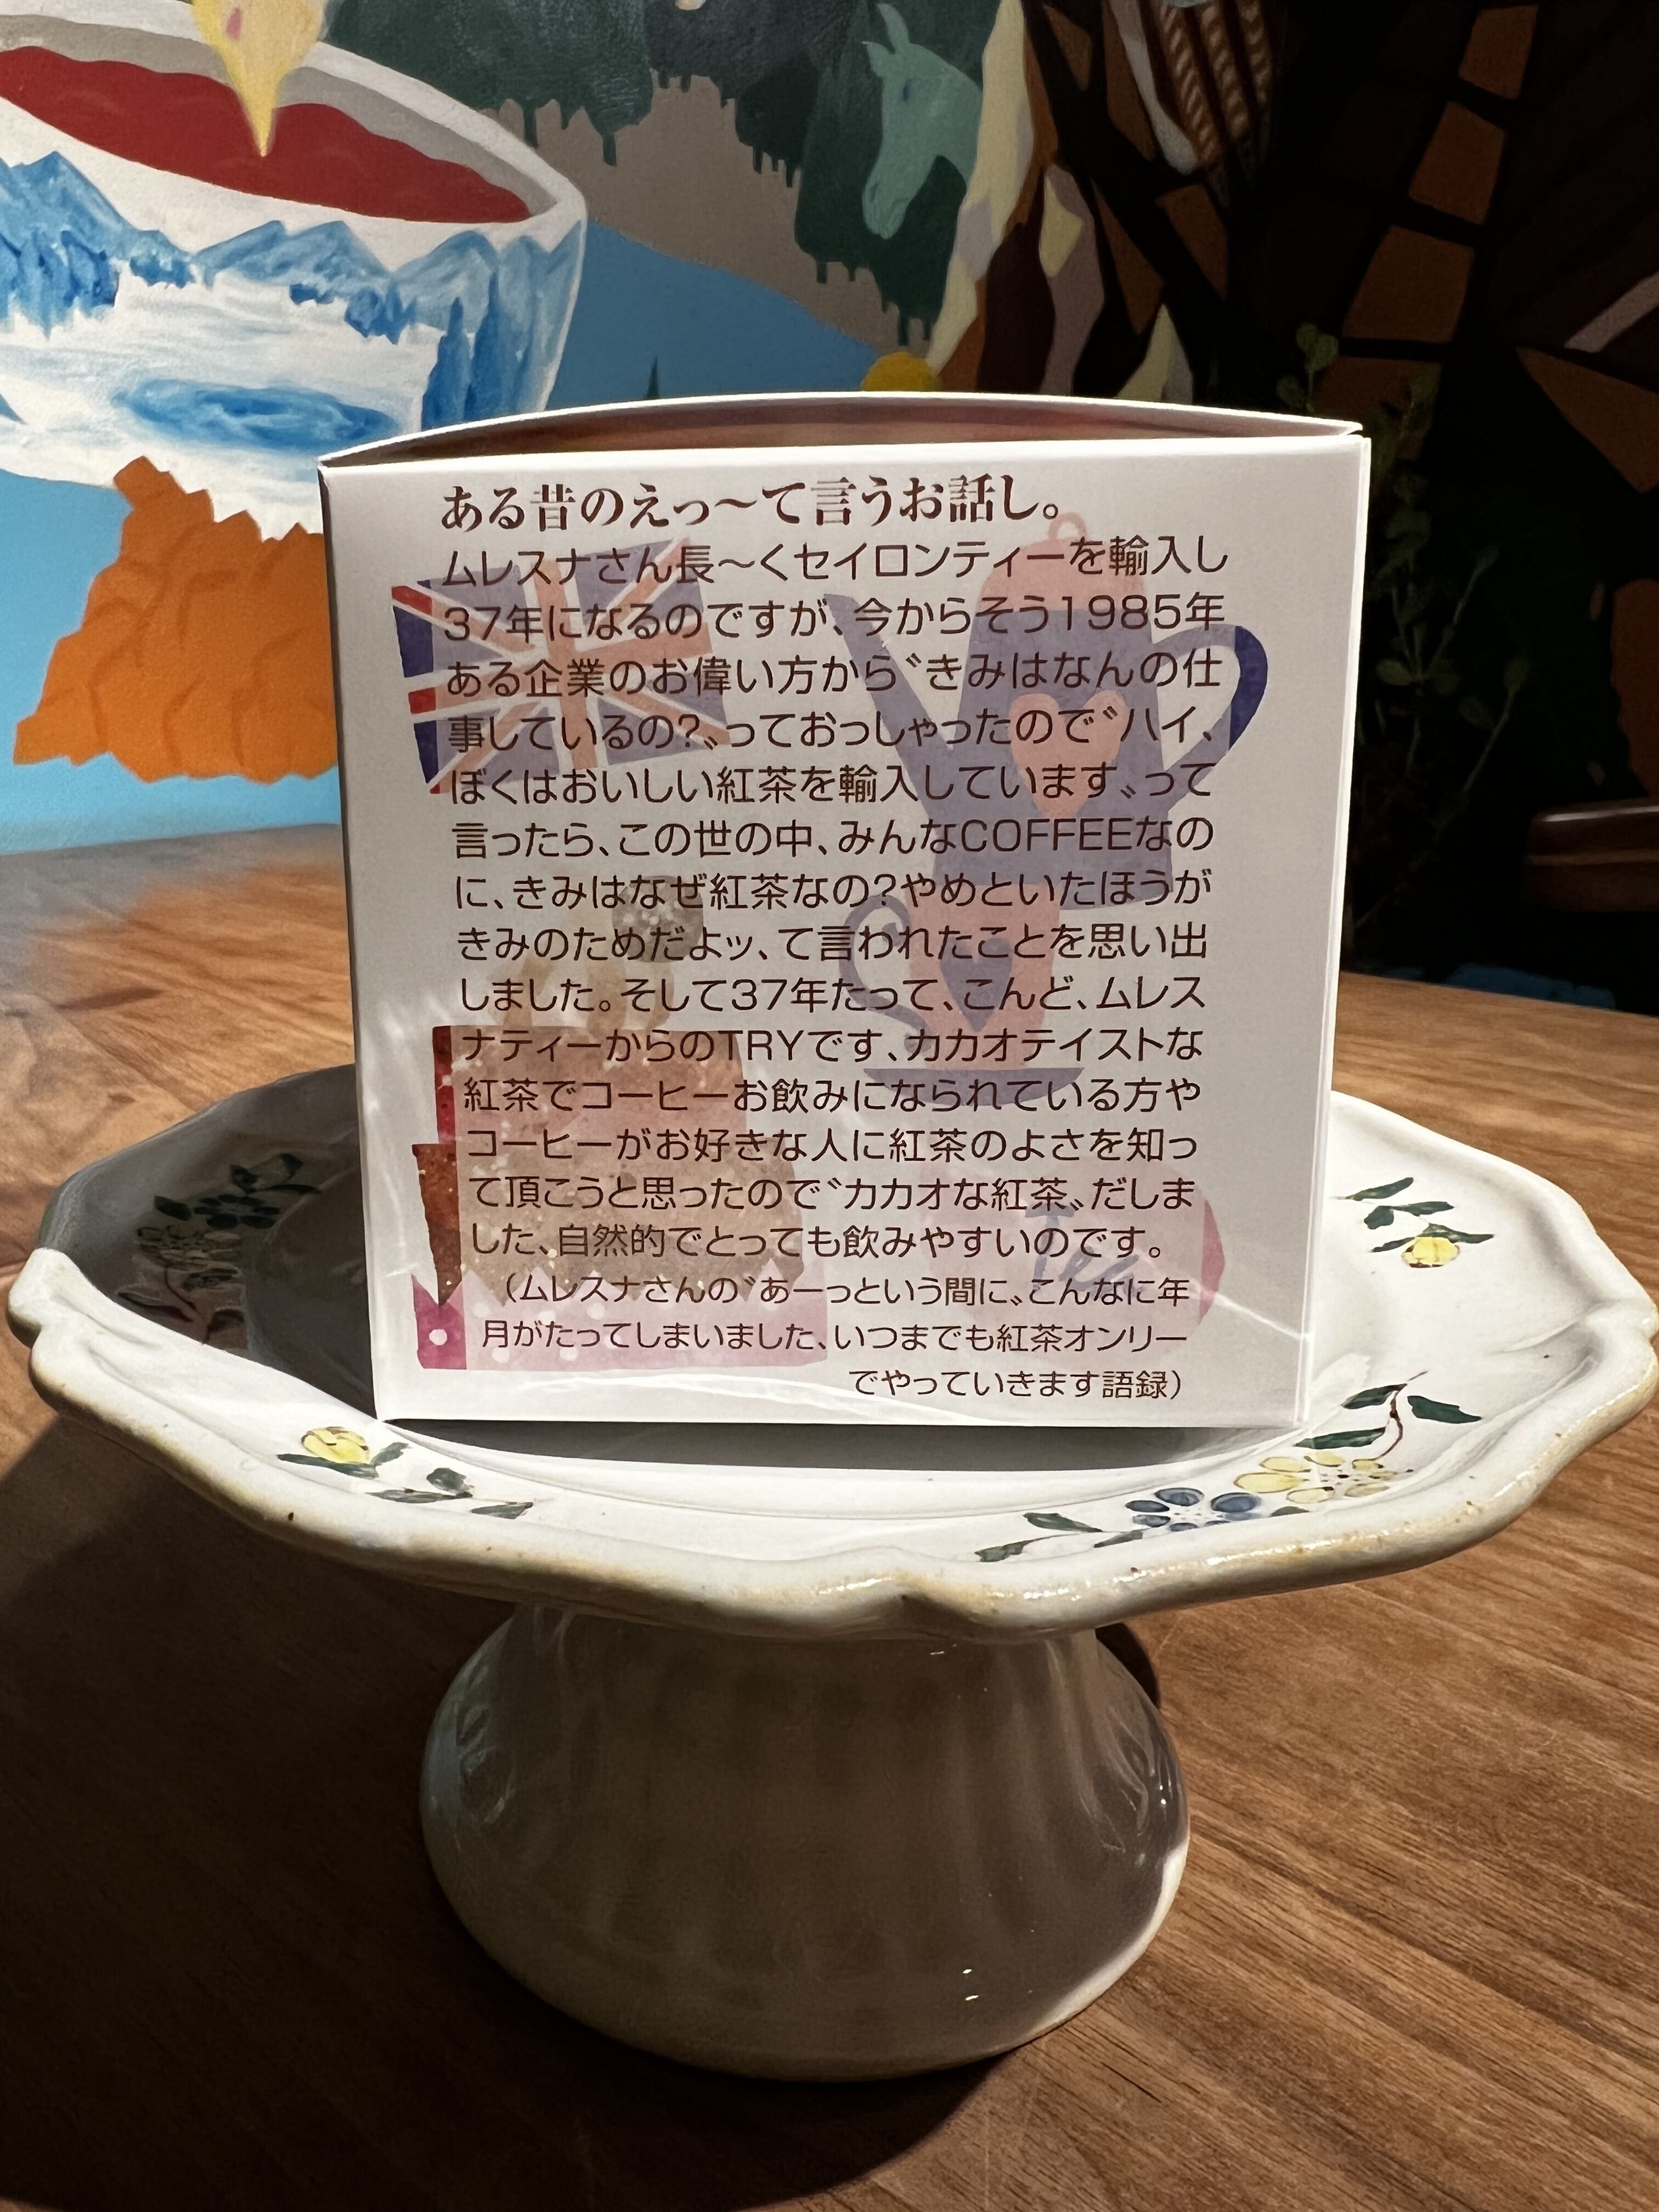 ある昔のえっ〜て言うお話し。
ムレスナさん長〜くセイロンティーを輸入し
37年になるのですが、今からそう1985年
ある企業のお偉い方から〝きみはなんの仕
事しているの?〟っておっしゃったので〝ハイ、
ぼくはおいしい紅茶を輸入しています〟って
言ったら、この世の中、みんなCOFFEEなの
に、きみはなぜ紅茶なの?やめといたほうが
きみのためだよッ、て言われたことを思い出
しました。そして37年たって、こんど、ムレス
ナティーからのTRYです、カカオテイストな
紅茶でコーヒーお飲みになられている方や
コーヒーがお好きな人に紅茶のよさを知っ
て頂こうと思ったので〝カカオな紅茶〟だしま
した、自然的でとっても飲みやすいのです。
(ムレスナさんの〝あーっという間に〟こんなに年
月がたってしまいました、いつまでも紅茶オンリー
でやっていきます語録)
Tea